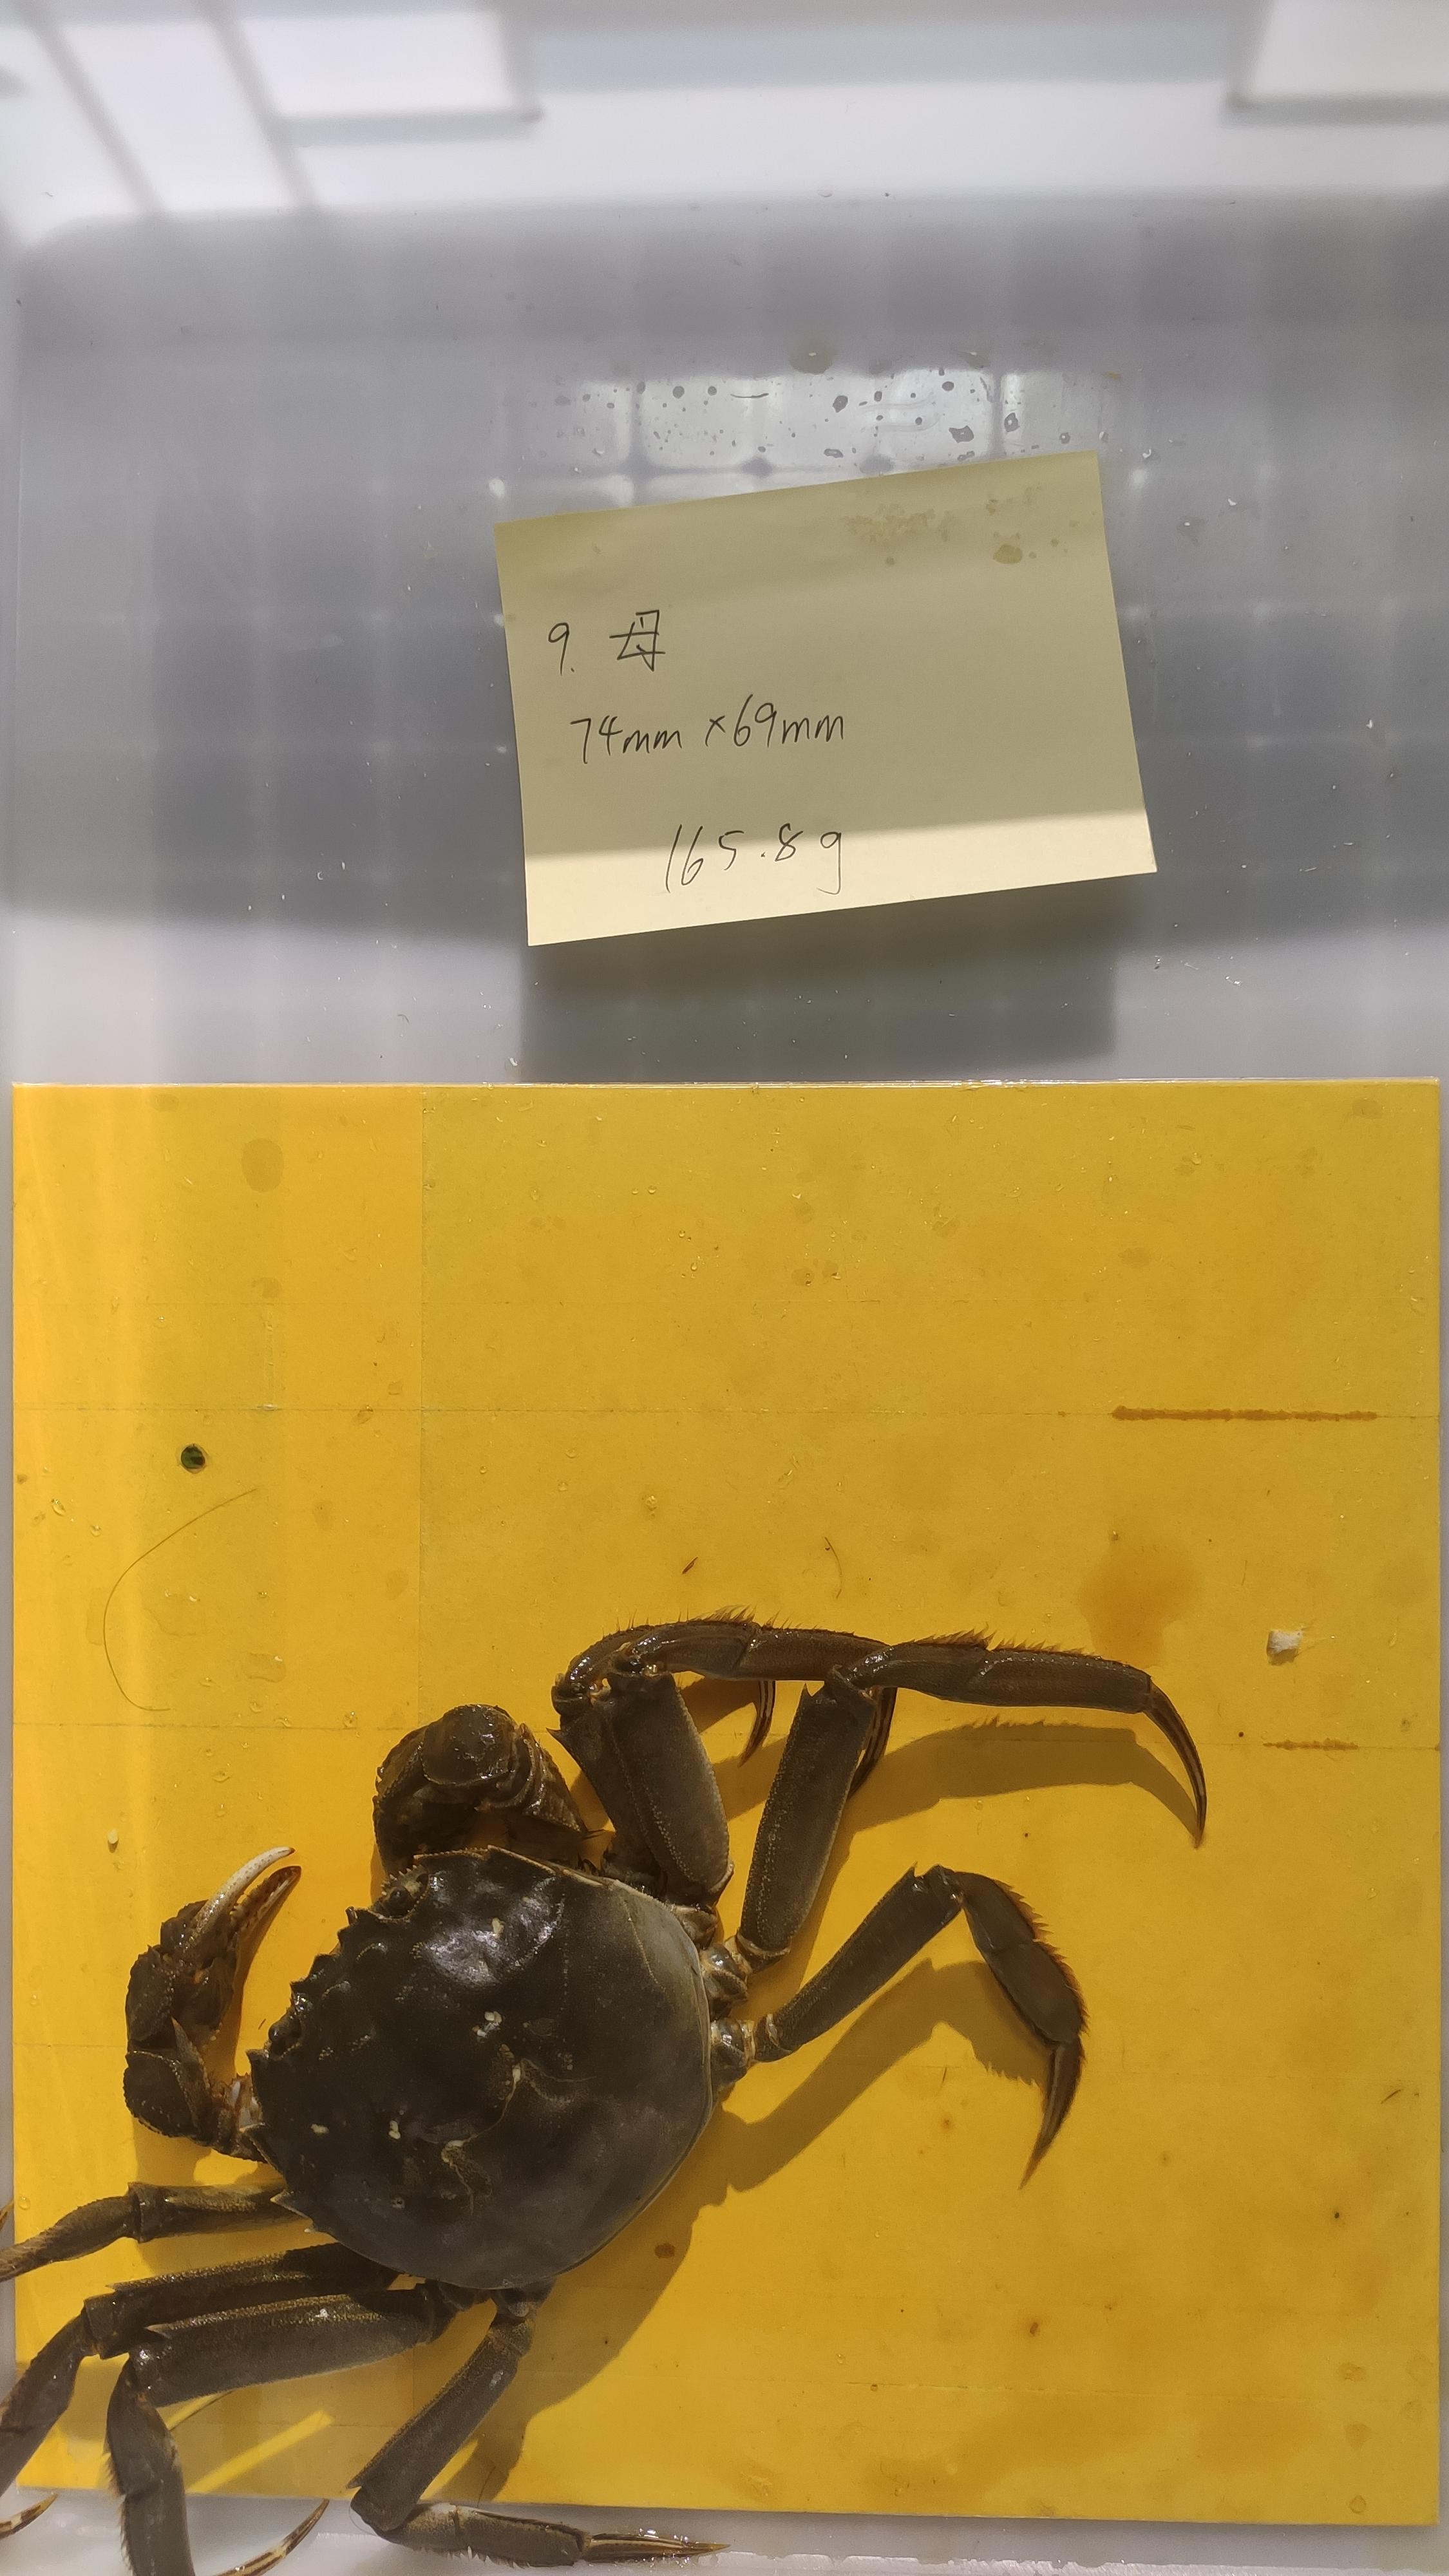 9. 母
74mm×69mm
165.8g